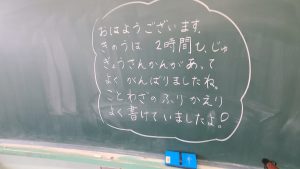 おはようございます。
きのうは 2時間も、じゅ
ぎょうさんかんがあって
よく がんばりましたね。
ことわざのふりかえり
よく書けていましたよ!